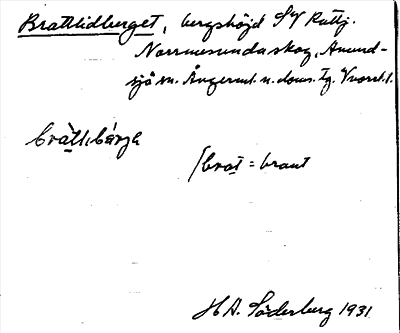 Brattlidberget, bergshöjd SV Rattj.
Norrmesundaskog, Anund-
sjö sn. Ångerml. n. doms. tg.
bratlıbärjə
/brat = brant
H A. Söderberg 1931